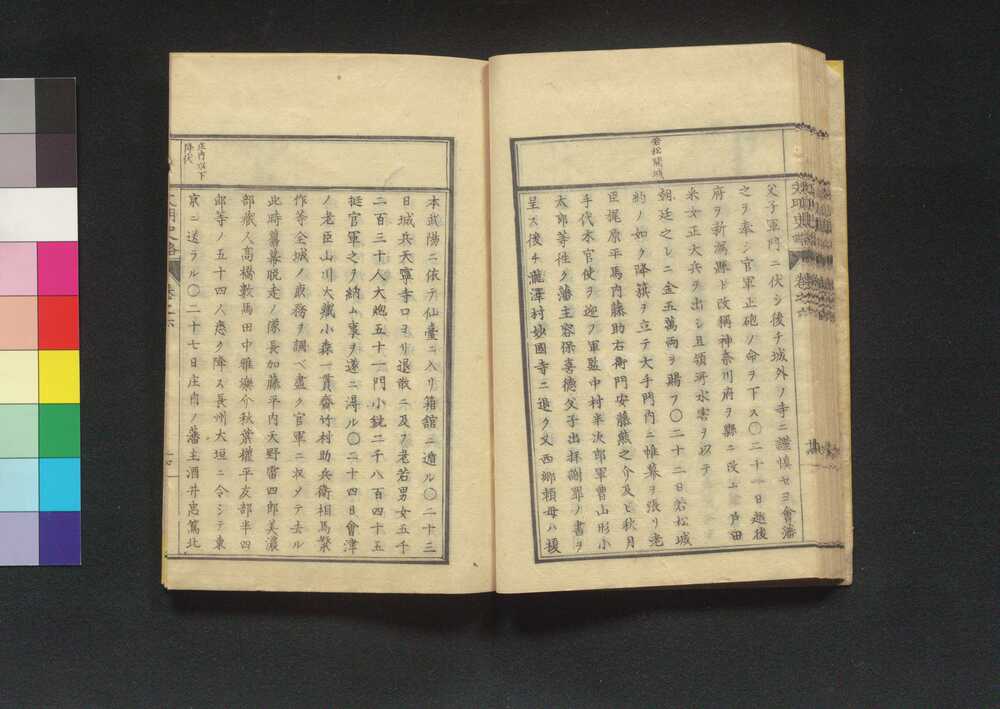 若松開城
父子軍門ニ伏シ後チ城外ノ寺ニ謹慎セヨ會藩
之ヲ奉シ官軍正砲ノ命ヲ下ス〇二十一日越後
府ヲ新潟縣ト改稱神奈川府ヲ縣ニ改ム戸田
采女正大兵ヲ出シ且領河水害ヲ以テ
朝廷之レニ金五萬両ヲ賜フ〇二十二日若松城
約ノ如ク降旗ヲ立テ大手門内ニ帷幕ヲ張リ老
臣梶原平馬内藤助右衛門安藤熊之介及ヒ秋月
手代木官使ヲ迎フ軍監中村半次郎軍曹山形小
太郎等往ク藩主容保喜徳父子出拝謝罪ノ書ヲ
呈ス後チ瀧澤村妙國寺ニ退ク又西郷頼母ハ榎
文明史略 卷之六
庄内以下
降伏
本武陽ニ依テ仙臺ニ入リ箱舘ニ遁ル〇二十三
日城兵天寧寺口ヨリ退散ニ及フ老若男女五千
二百三十人大炮五十一門小銃二千八百四十五
挺官軍之ヲ納ム事ヲ遂ニ得ル〇二十四日會津
ノ老臣山川大藏小森一貫齋竹村助兵衛相馬繁
作等全城ノ政務ヲ調ベ盡ク官軍ニ収メテ去ル
此時舊幕脱走ノ隊長加藤平内天野雷四郎美濃
部藏人高橋數馬田中雅樂介秋葉權平友部半四
郎等ノ五十四人悉ク降ス長州大垣ニ令シテ東
京ニ送ラル〇二十七日庄内ノ藩主酒井忠篤北